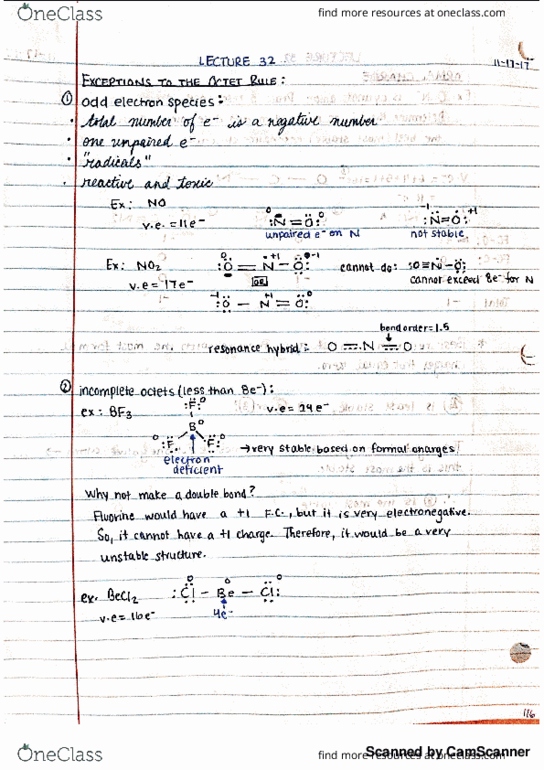 OneClass
find more resources at oneclass.com
LECTURE 32
11-17-17
EXCEPTIONS TO THE OCTET RULE:
① odd electron species:
• total number of e⁻ is a negative number
• one unpaired e⁻
• "radicals"
• reactive and toxic
Ex: NO
v.e. = 11e⁻
N=O
unpaired e⁻ on N
-1 +1
:N=O:
not stable
Ex: NO₂
v.e = 17e⁻
O = N - O:
OR
:O - N = O:
cannot do: :O≡N-O:
cannot exceed 8e⁻ for N
bond order = 1.5
resonance hybrid: O == N == O
② incomplete octets (less than 8e⁻):
ex: BF₃
v.e = 24e⁻
:F:
B
:F: :F:
electron deficient
→ very stable based on formal charges
Why not make a double bond?
Fluorine would have a +1 F.C., but it is very electronegative.
So, it cannot have a +1 charge. Therefore, it would be a very
unstable structure.
ex. BeCl₂
v.e = 16e⁻
:Cl - Be - Cl:
4e⁻
116
Scanned by CamScanner
OneClass
find more resources at oneclass.com